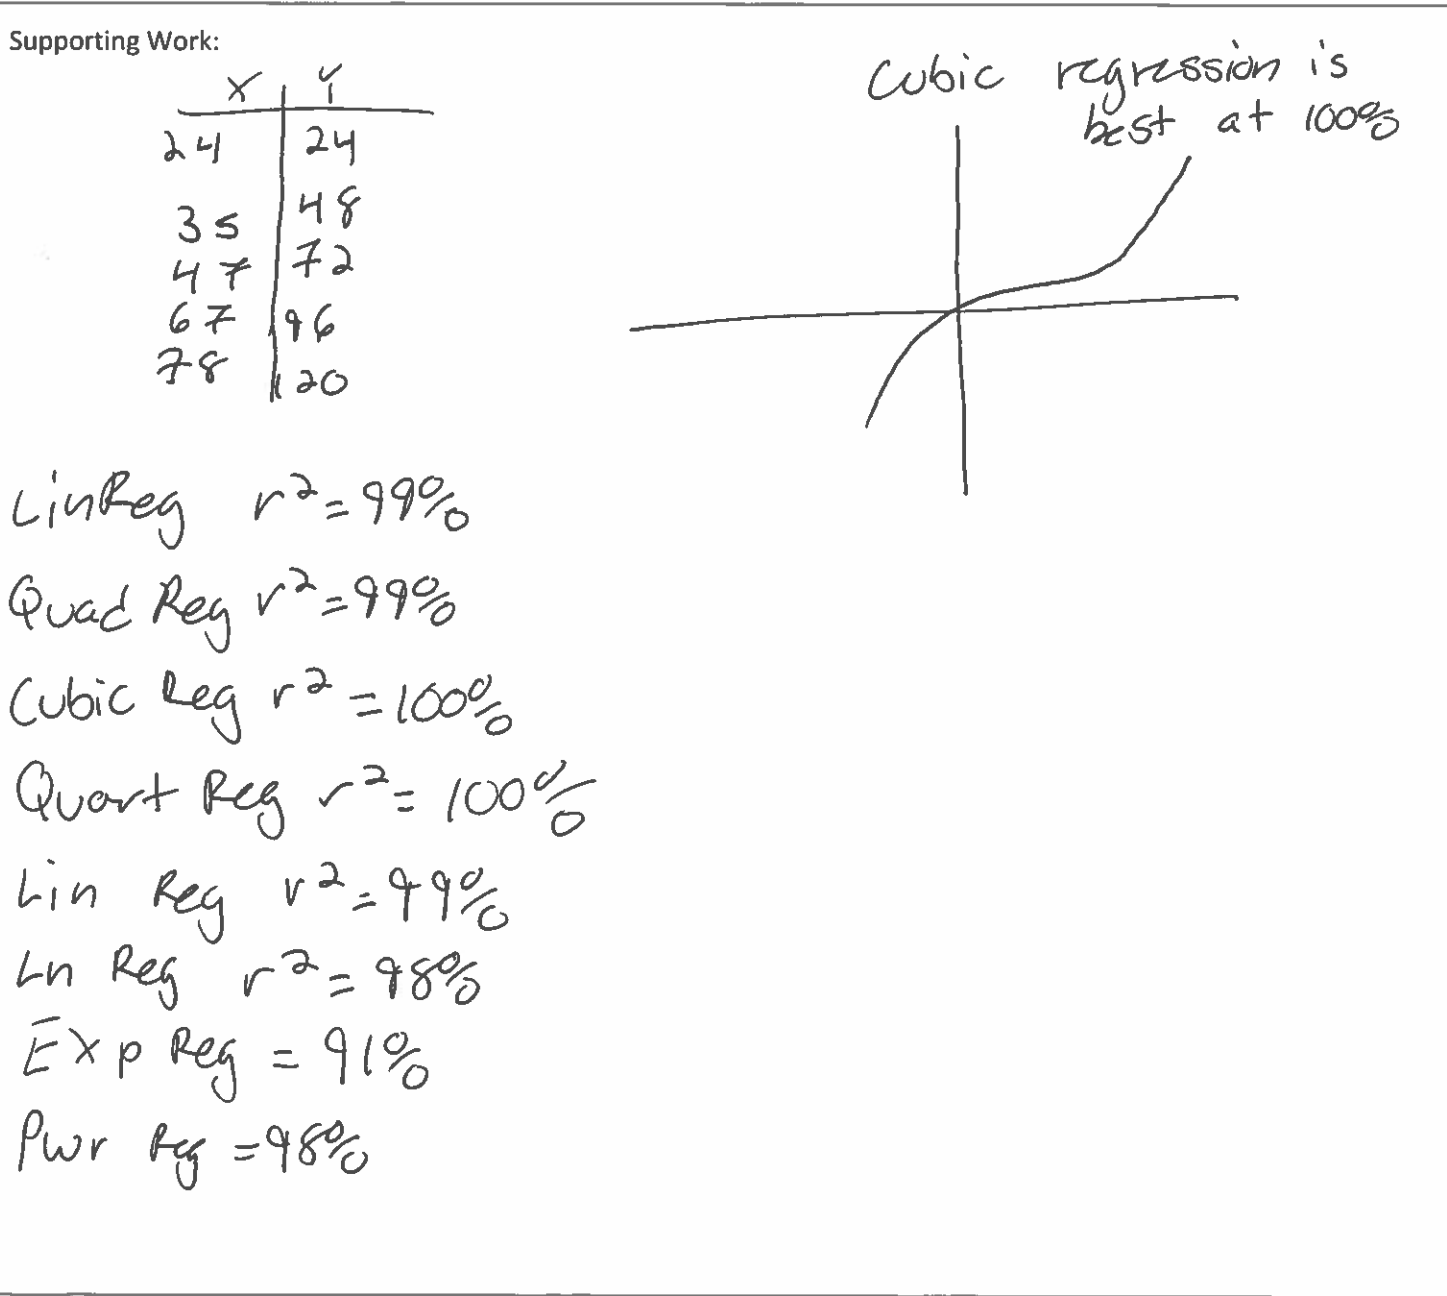 Supporting Work:
X Y
24 24
35 48
47 72
67 96
78 120
Cubic regression is
best at 100%
LinReg r²=99%
Quad Reg r²=99%
Cubic Reg r²=100%
Quart Reg r²=100%
Lin Reg r²=99%
Ln Reg r²=98%
Exp Reg=91%
Pwr Reg=98%